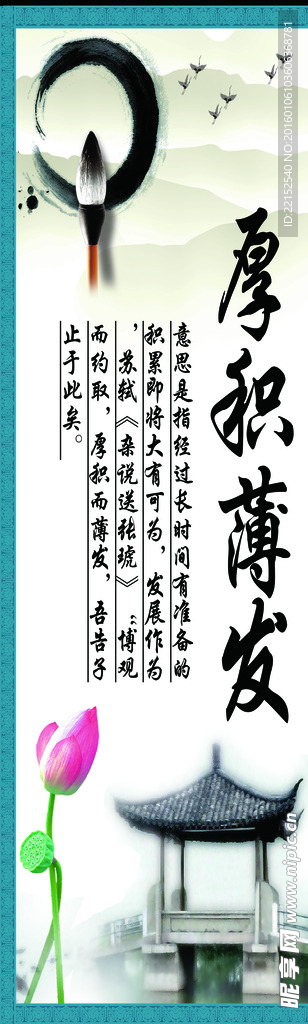 厚积薄发
意思是指经过长时间有准备的
积累即将大有可为，发展作为
，苏轼《杂说送张琥》：“博观
而约取，厚积而薄发，吾告子
止于此矣。
ID:22152540 NO:20160106103606168781
昵享网 www.nipic.cn